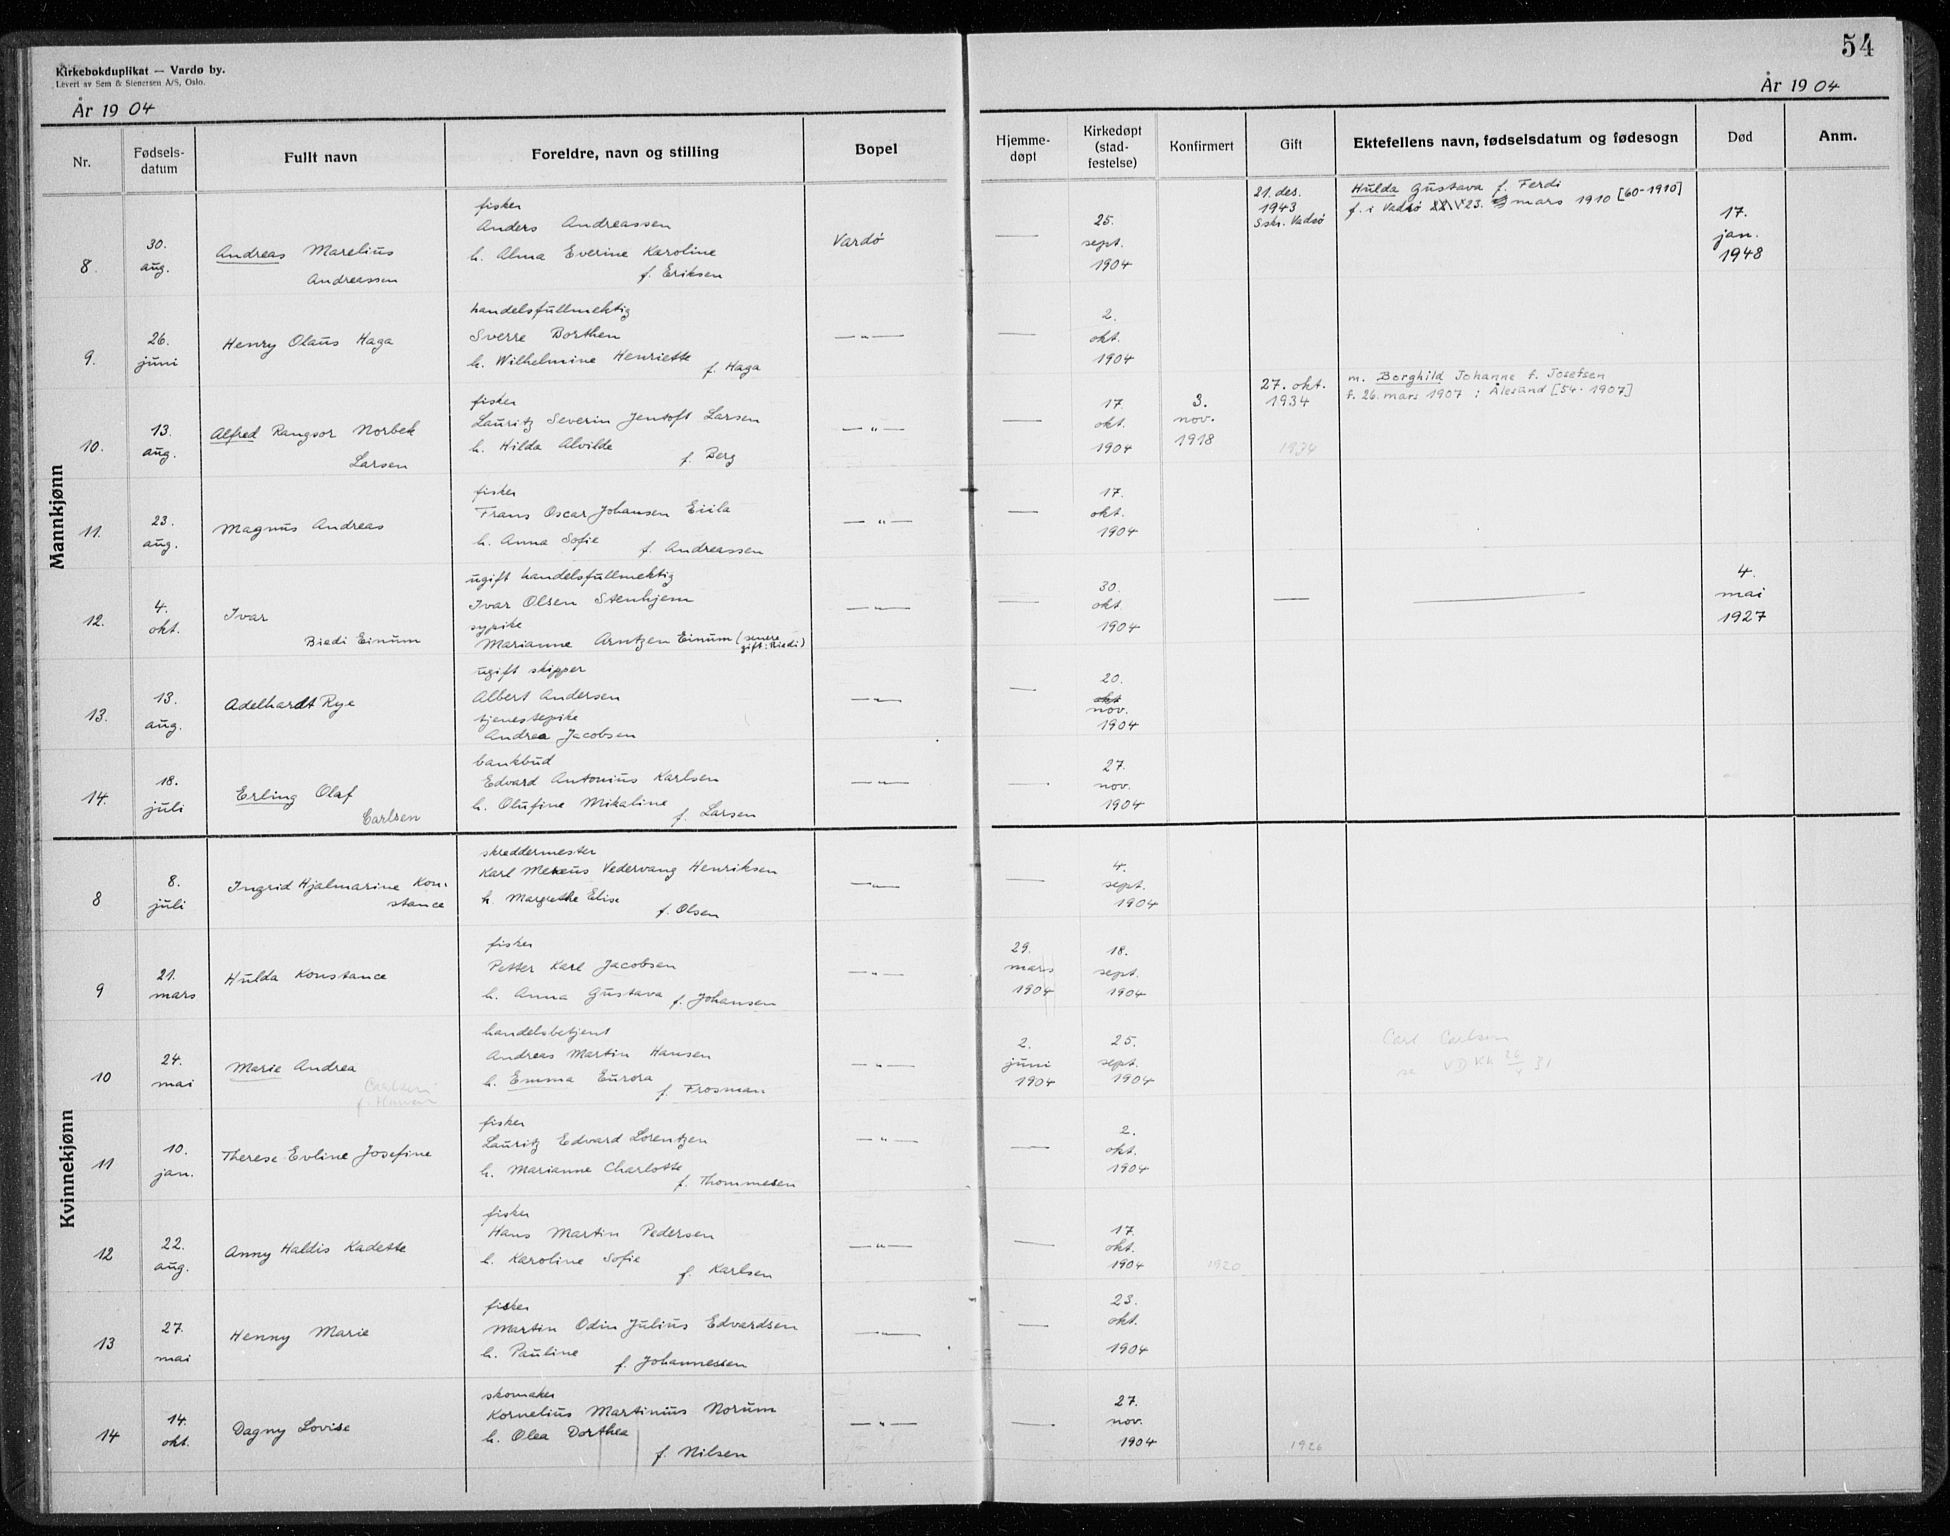 Kirkebokduplikat — Vardø by.
Levert av Sem & Stenersen A/S, Oslo.
54
År 1904
År 1904
Nr.
Fødsels-
datum
Fullt navn
Foreldre, navn og stilling
Bopel
Hjemme-
døpt
Kirkedøpt
(stad-
festelse)
Konfirmert
Gift
Ektefellens navn, fødselsdatum og fødesogn
Død
Anm.
Mannkjønn
8.
30.
aug.
Andreas Marelius
Andreassen
fisker
Anders Andreassen
h. Alma Everine Karoline
f. Eriksen
Vardø
—
25.
sept.
1904
21. des.
1943
S.skr. Vadsø
Hulda Gustava f. Ferdi
f. i Vadsø 23. mars 1910 [60-1910]
17.
jan.
1948
9.
26.
juni
Henry Olaus Haga
handelsfullmektig
Sverre Borthen
h. Wilhelmine Henriette
f. Haga
— " —
—
2.
okt.
1904
10.
13.
aug.
Alfred Rangsor Norbek
Larsen
fisker
Lauritz Severin Jentoft Larsen
h. Hilda Alvilde
f. Berg
— " —
—
17.
okt.
1904
3.
nov.
1918
27. okt.
1934
1934
m. Borghild Johanne f. Josefsen
f. 26. mars 1907 i Ålesund [54-1907]
11.
23.
aug.
Magnus Andreas
fisker
Frans Oscar Johansen Eiila
h. Anna Sofie
f. Andreassen
— " —
—
17.
okt.
1904
12.
4.
okt.
Ivar
Biedi Einum
ugift handelsfullmektig
Ivar Olsen Stenhjem
sypike
Marianne Arntzen Einum (senere
gift: Biedi)
— " —
—
30.
okt.
1904
—
—
4.
mai
1927
13.
13.
aug.
Adelhardt Rye
ugift skipper
Albert Andersen
tjenestepike
Andrea Jacobsen
— " —
—
20.
okt
nov.
1904
14.
18.
juli
Erling Olaf
Carlsen
bankbud
Edvard Antonius Karlsen
h. Olufine Mikaline
f. Larsen
— " —
—
27.
nov.
1904
Kvinnekjønn
8
8.
juli
Ingrid Hjalmarine Kon-
stance
skreddermester
Karl Vedervang Henriksen
h. Margrethe Elise
f. Olsen
— " —
—
4.
sept.
1904
9
21.
mars
Hulda Konstance
fisker
Petter Karl Jacobsen
h. Anna Gustava f. Johansen
— " —
29.
mars
1904
18.
sept.
1904
10
24.
mai
Marie Andrea
Carlsen
f. Hansen
handelsbetjent
Andreas Martin Hansen
h. Emma Eurora
f. Frosman
— " —
2.
juni
1904
25.
sept.
1904
Carl Carlsen
11
10.
jan.
Therese Evline Josefine
fisker
Lauritz Edvard Lorentzen
h. Marianne Charlotte
f. Thommesen
— " —
—
2.
okt.
1904
12
22.
aug.
Anny Haldis Kadette
fisker
Hans Martin Pedersen
h. Karoline Sofie
f. Karlsen
— " —
—
17.
okt.
1904
1920
13
27.
mai
Henny Marie
fisker
Martin Odin Julius Edvardsen
h. Pauline
f. Johannessen
— " —
—
23.
okt.
1904
14
14.
okt.
Dagny Lovise
skomaker
Kornelius Martinius Norum
h. Olea Dorthea
f. Nilsen
— " —
—
27.
nov.
1904
1926